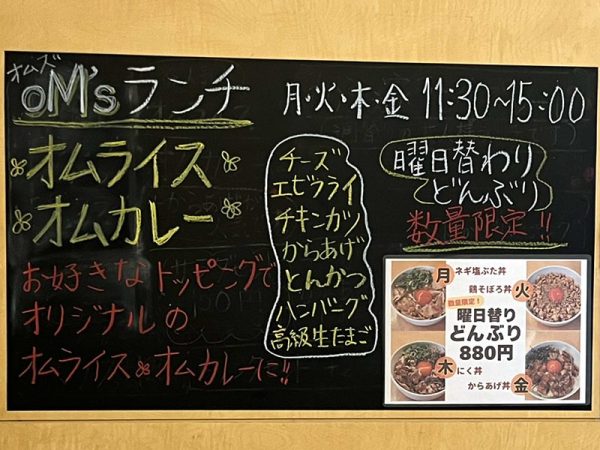 オムズ
oM'sランチ
月・火・木・金 11:30~15:00
*オムライス*
*オムカレー*
お好きなトッピングで
オリジナルの
オムライス*オムカレーに!!
チーズ
エビフライ
チキンカツ
からあげ
とんかつ
ハンバーグ
高級生たまご
曜日替わり
(どんぶり)
数量限定!!
月 ネギ塩ぶた丼
鶏そぼろ丼 火
数量限定!
曜日替り
どんぶり
880円
木 にく丼
からあげ丼 金